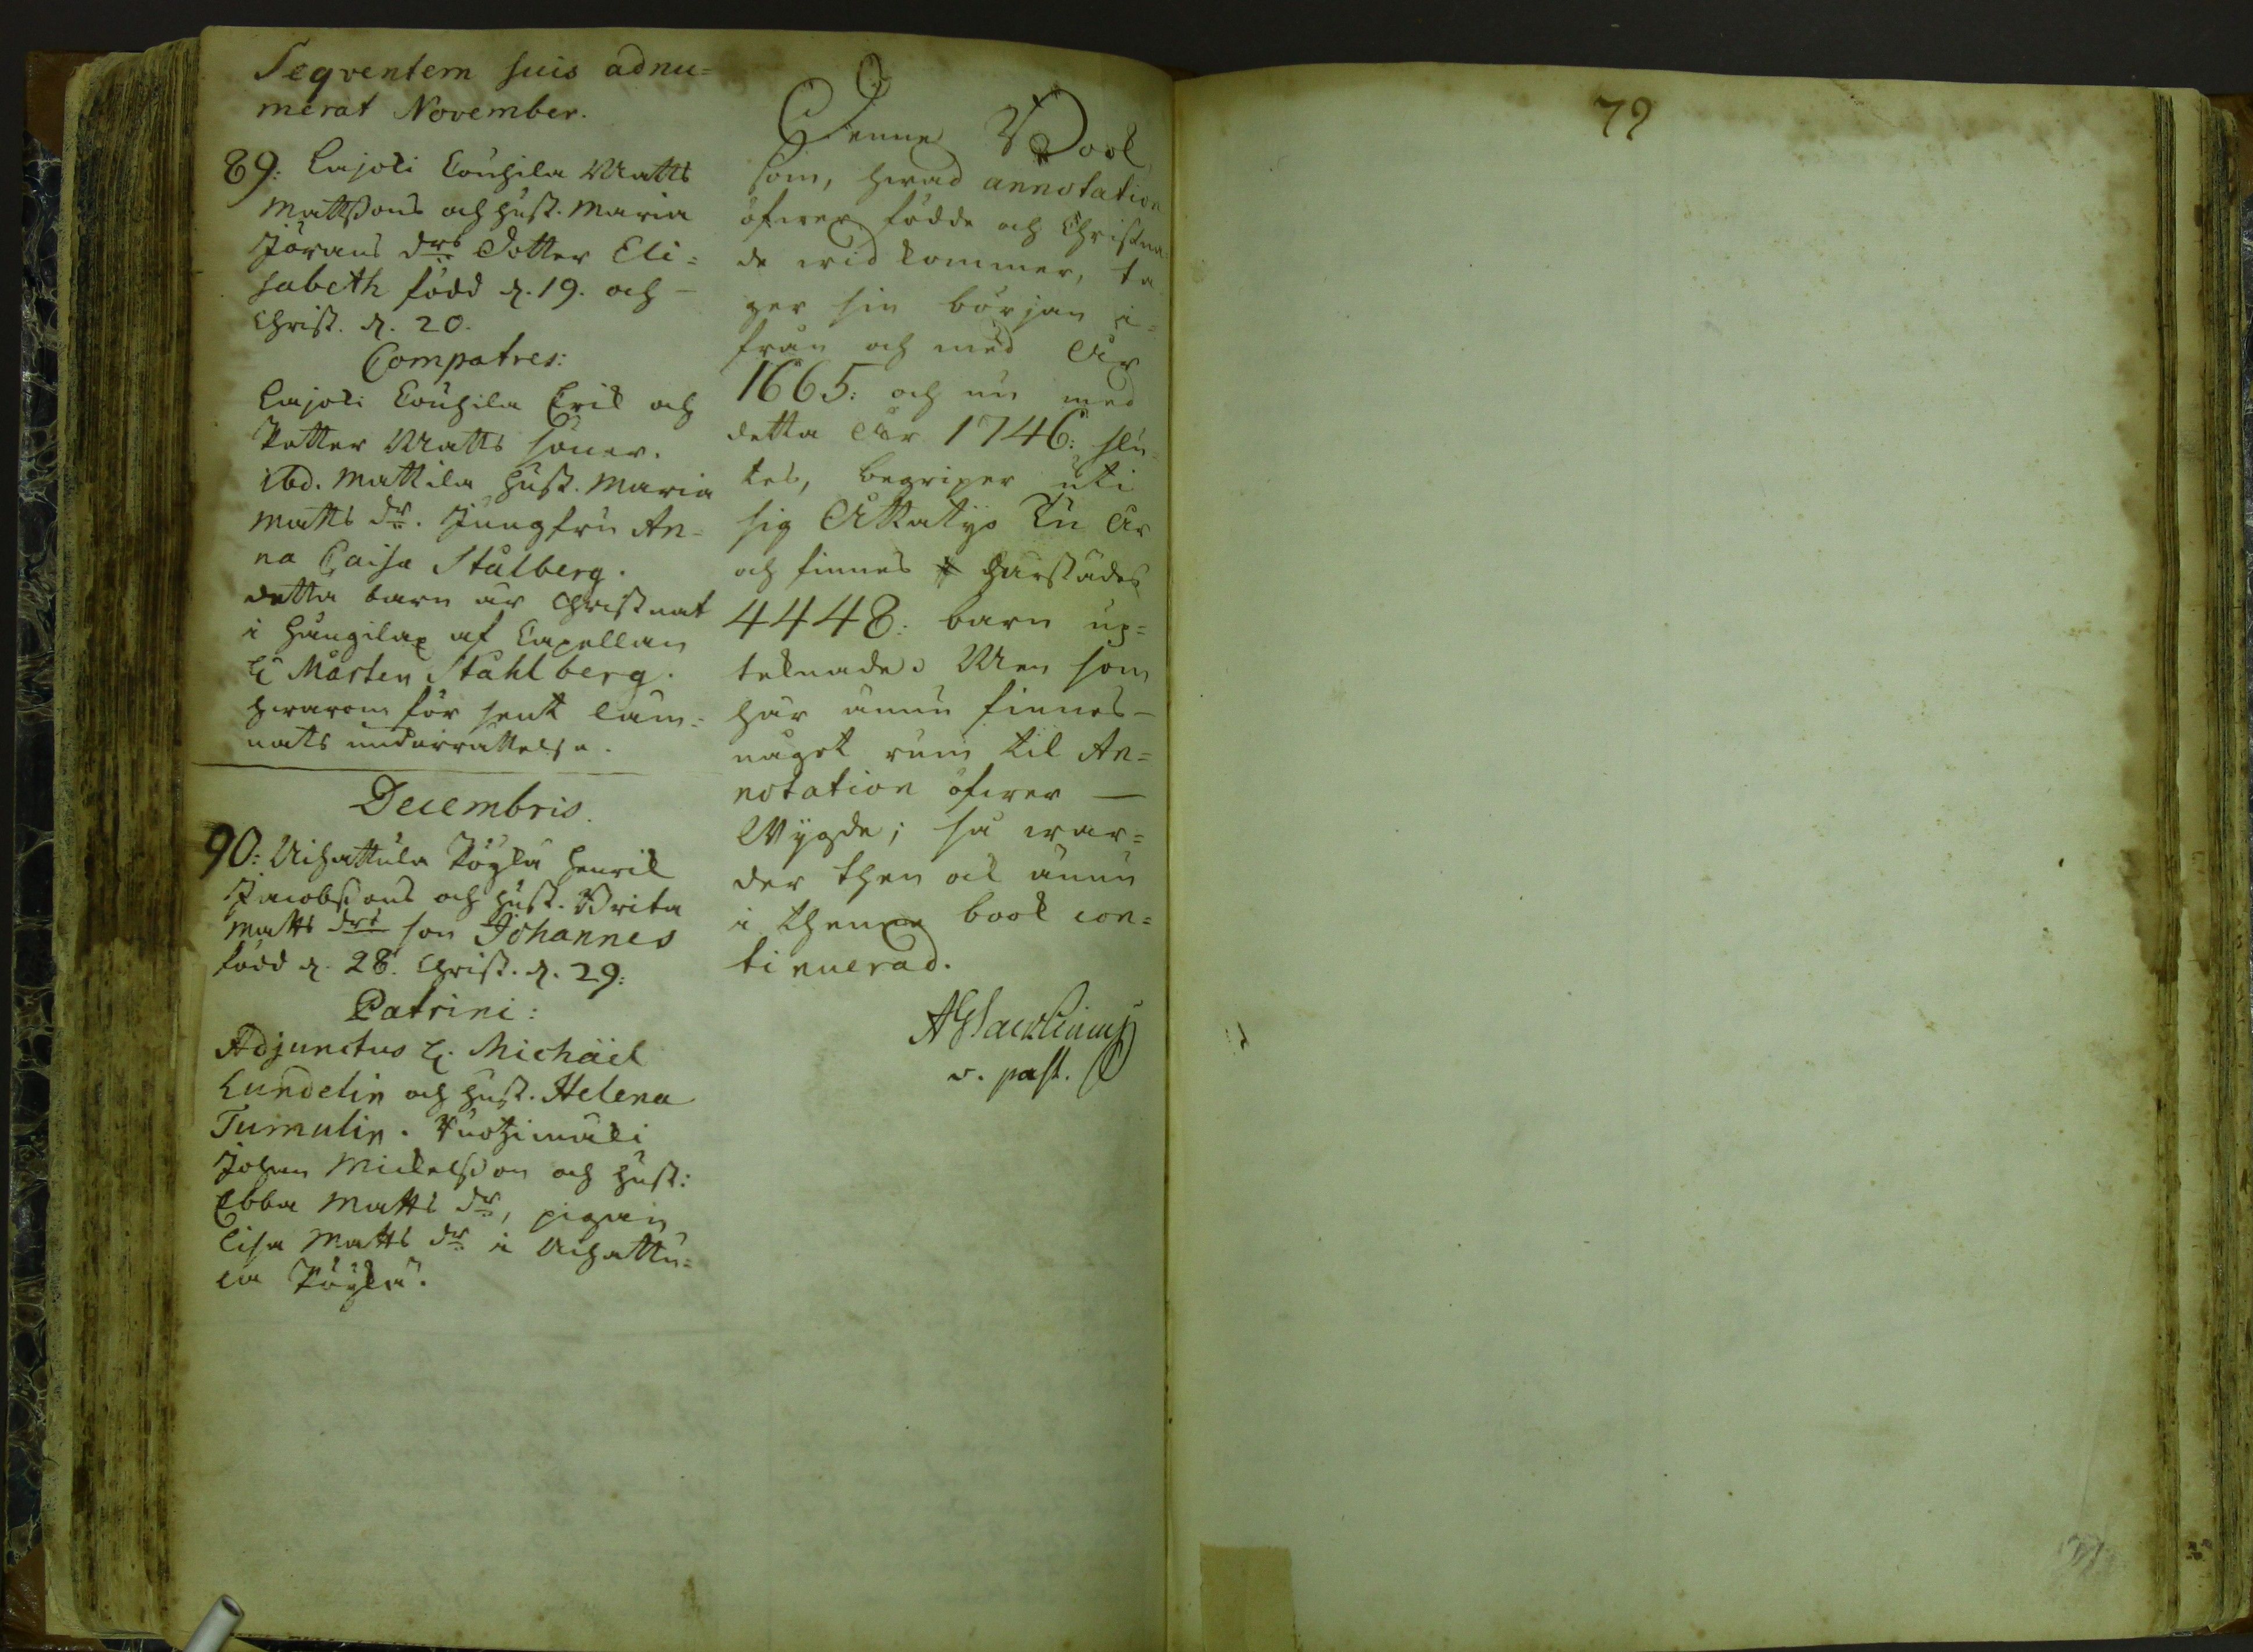 Seqventem suis adnu=
merat November.
89: Lajoki Couhila Matts
Mattssons och hust. Maria
Jörans drs Dotter Eli=
sabeth född d. 19. och –
Christ. d. 20.
Compatres:
Lajoki Couhila Erik och
Petter Matts söner.
ibd. Mattila hust. Maria
Matts dr. Jungfru An=
na Caisa Stålberg.
detta barn är Christnat
i af Capellan
H Mårten Ståhlberg.
hwarom för sent läm=
nats underrättelse.
Decembris.
90: Uihattula Pöylä Henrik
Jacobssons och hust. Brita
Matts drs son Johannes
född d. 28. Christ. d. 29:
Patrini:
Adjunctus H. Michäel
Lundelin och hust. Helena
Tumulin.
Johan Mickelsson och hust:
Ebba Matts dr, pigan
Lisa Matts dr i Uihattu=
la Pöylä.
Denne Book
som, hwad annotation
öfwer födde och Christna=
de wid kommer, ta
ger sin början i=
från och med År
1665: och nu med
detta År 1746: slu
tes, begriper uti
sig Ottatijo Tu År
och finnes härstädes
4448: barn up=
teknade: Men som
här ännu finnes –
något rum til An=
notation öfwer –
Wygde; så war=
der then ok ännu
i thenne book con=
tinuerad.
v. past.
79